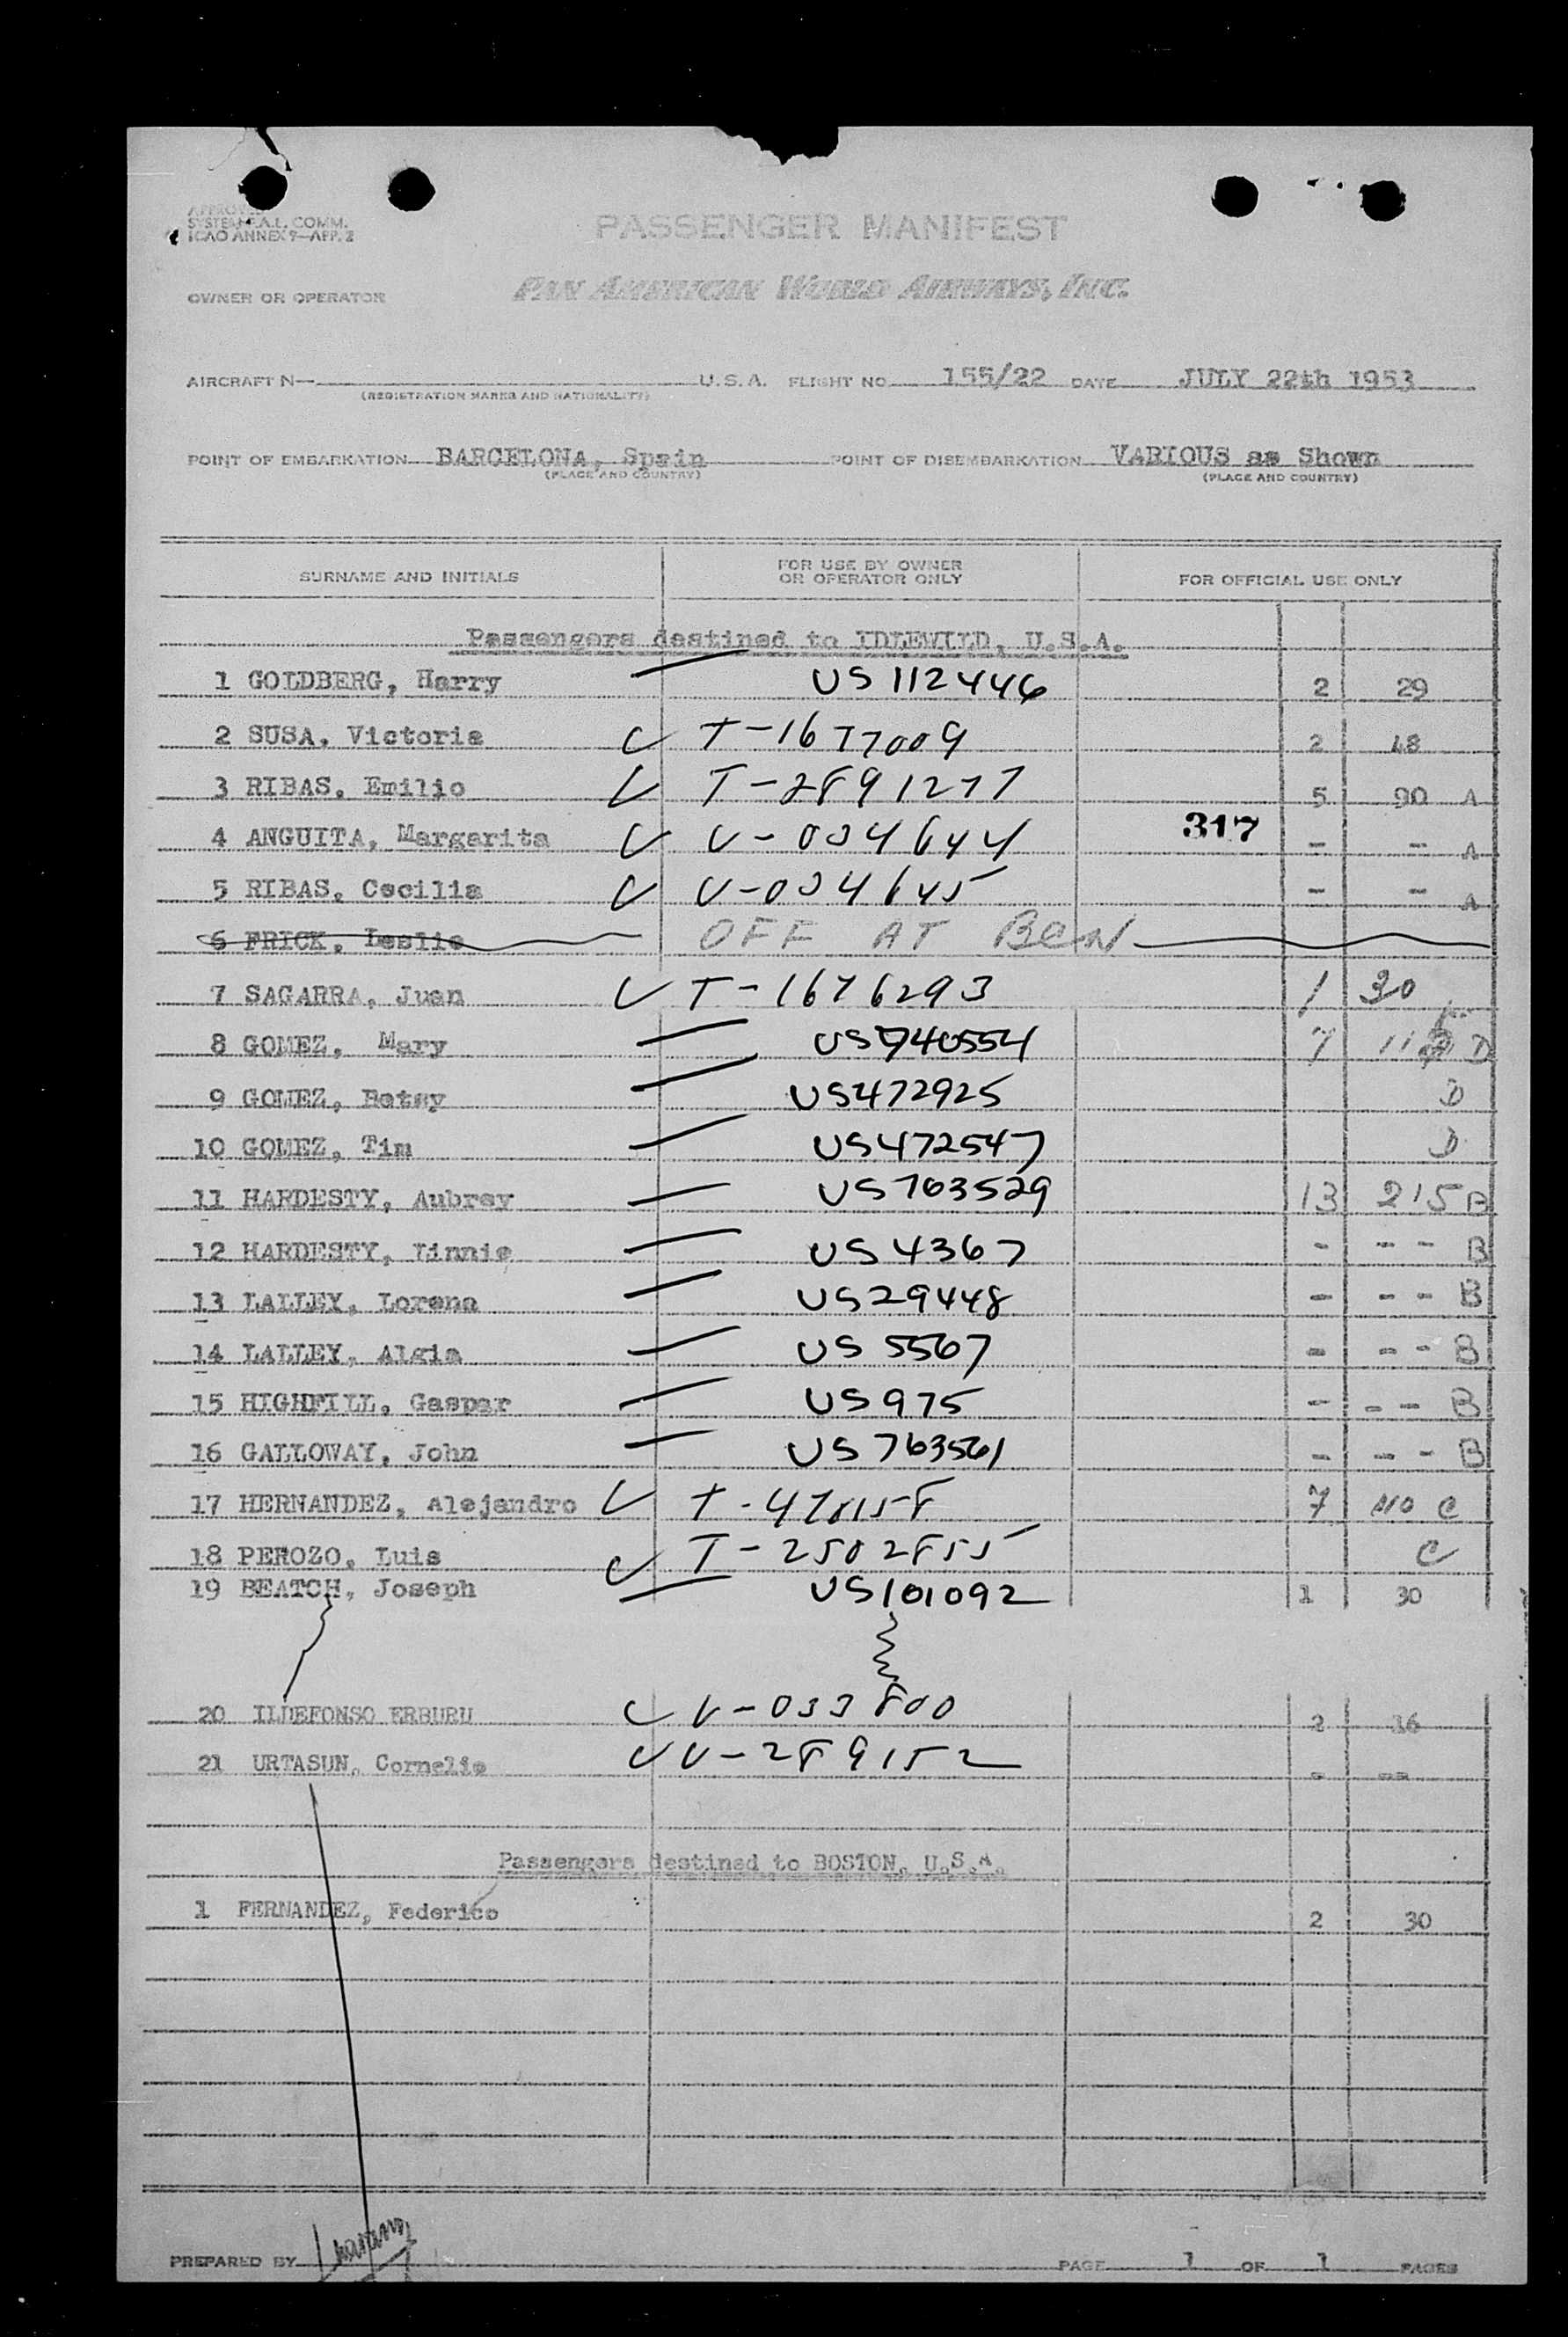 APPROVED
SYSTEM F.A.L. COMM.
ICAO ANNEX 9—APP. 2
PASSENGER MANIFEST
OWNER OR OPERATOR PAN AMERICAN WORLD AIRWAYS, INC.
AIRCRAFT N— U.S.A. FLIGHT NO. 155/22 DATE JULY 22th 1953
(REGISTRATION MARKS AND NATIONALITY)
POINT OF EMBARKATION BARCELONA, Spain POINT OF DISEMBARKATION VARIOUS as Shown
(PLACE AND COUNTRY) (PLACE AND COUNTRY)
SURNAME AND INITIALS FOR USE BY OWNER OR OPERATOR ONLY FOR OFFICIAL USE ONLY
Passengers destined to IDLEWILD, U.S.A.
1 GOLDBERG, Harry US 112446 2 29
2 SUSA, Victoria T-1677009 2 48
3 RIBAS, Emilio T-2891277 5 90 A
4 ANGUITA, Margarita V-0034644 317 - - A
5 RIBAS, Cecilia V-0034645 - - A
6 FRICK, Leslie OFF AT BCN
7 SAGARRA, Juan T-1676293 1 30
8 GOMEZ, Mary US740554 7 D
9 GOMEZ, Betsy US472925 D
10 GOMEZ, Tim US472547 D
11 HARDESTY, Aubrey US763529 13 215 B
12 HARDESTY, Vinnie US 4367 - - - B
13 LALLEY, Lorena US29448 - - - B
14 LALLEY, Algia US 5567 - - - B
15 HIGHFILL, Gaspar US 975 - - - B
16 GALLOWAY, John US 763561 - - - B
17 HERNANDEZ, Alejandro T-478158 7 110 C
18 PEROZO, Luis T-2502855 C
19 BEATCH, Joseph US101092 1 30
20 ILDEFONSO ERBURU V-033800 2 36
21 URTASUN, Cornelio V-289152 - --
Passengers destined to BOSTON, U.S.A.
1 FERNANDEZ, Federico 2 30
PREPARED BY PAGE 1 OF 1 PAGES